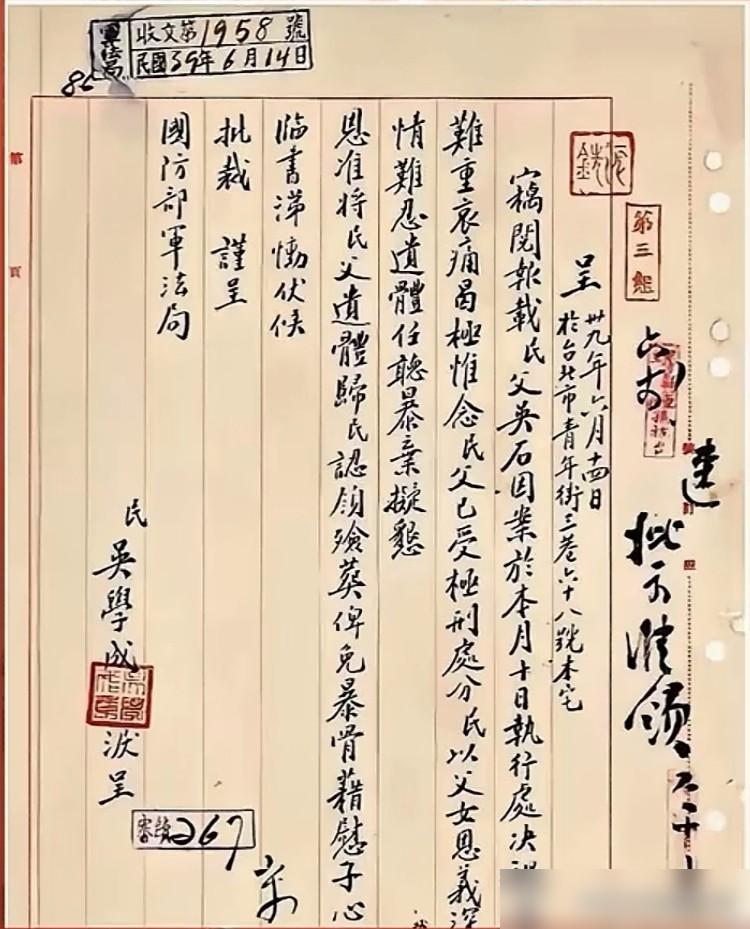 軍法局
收文第1958號
民國39年6月14日
86
速
批示准領
第三組
呈 卅九年六月十四日
於台北市青年街三巷六十八號本宅
竊閱報載民父吳石因業於本月十日執行處决
難重哀痛曷極惟念民父已受極刑處分民以父女恩義深
情難忍遺體任聽暴棄擬懇
恩准將民父遺體歸民認領殮葬俾免暴骨藉慰子心
臨書涕慟伏候
批裁 謹呈
國防部軍法局
民 吳學成 淚呈
267
第 頁